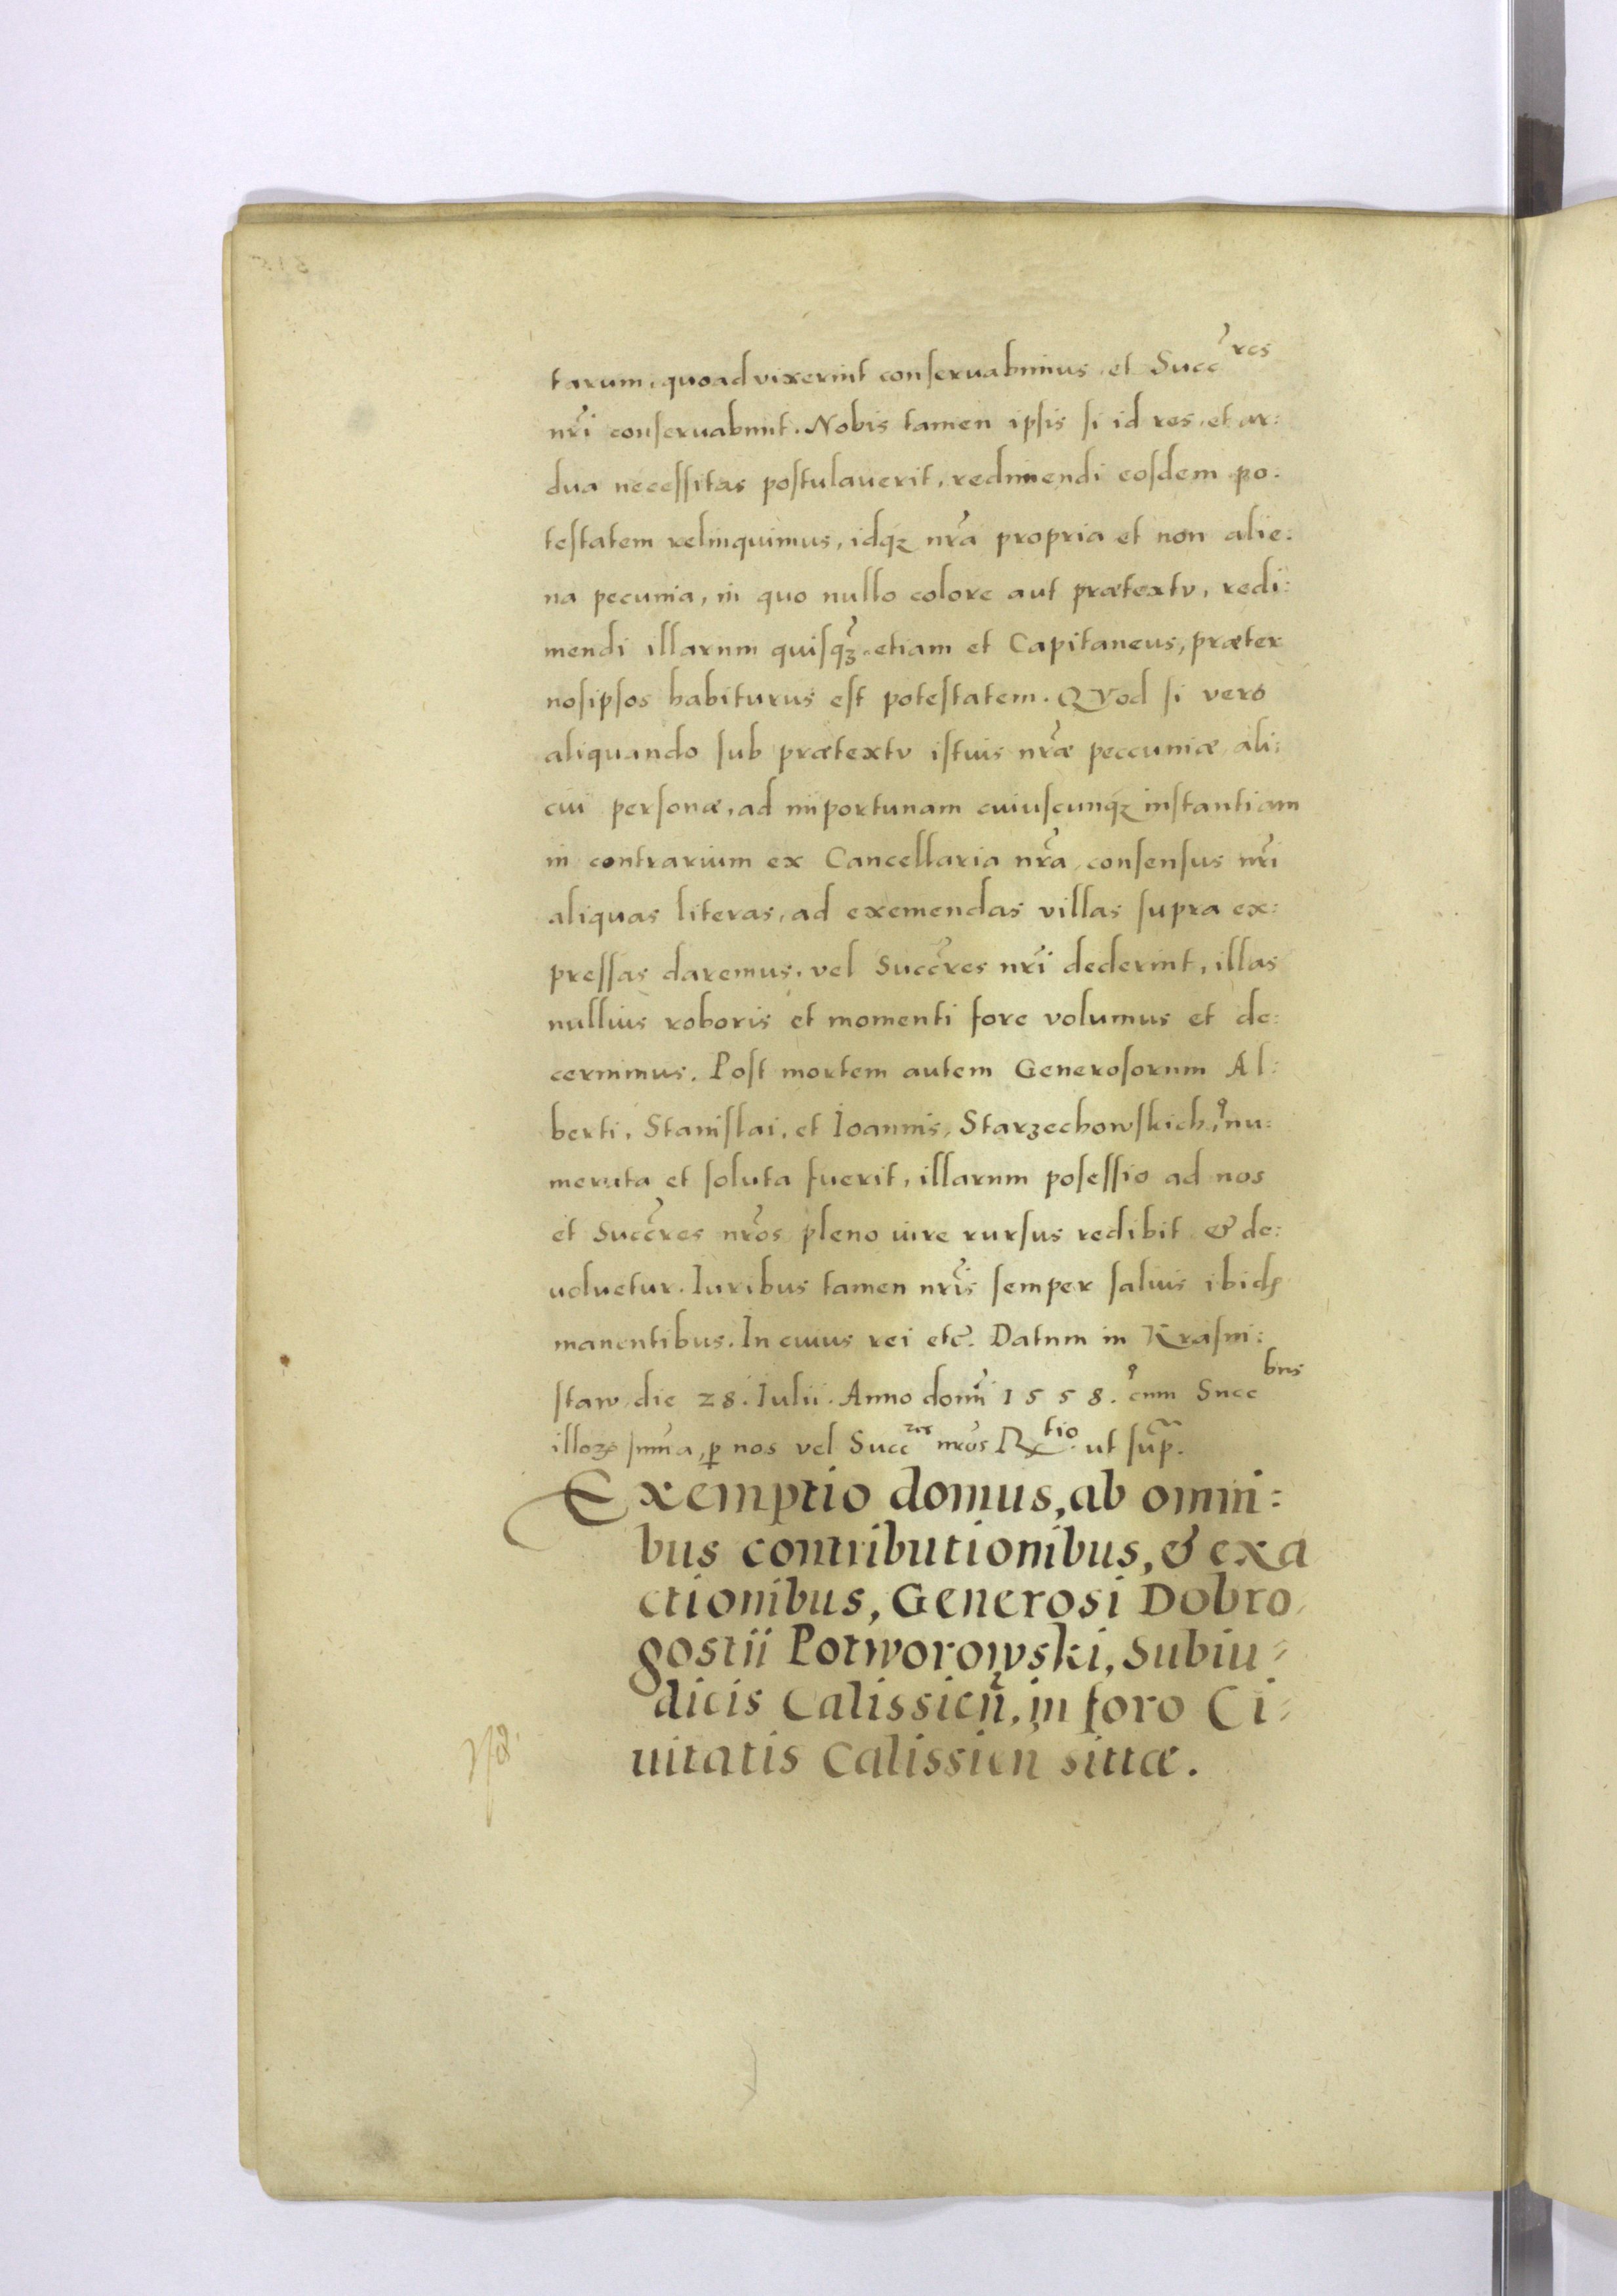 tarum, quoad vixerint conseruabimus et Succ̃res
nr̃i conseruabunt. Nobis tamen ipsis si id res et ar:
dua necessitas postulauerit, redimendi eosdem po.
testatem relinquimus, idq́ꝫ nr̃a propria et non alie:
na pecunia, in quo nullo colore aut prætextv, redi:
mendi illarum quisq̃ꝫ etiam et Capitaneus, præter
nosipsos habiturus est potestatem. QVod si vero
aliquando sub prætextv istius nr̃æ peccuniæ ali:
cui personæ, ad importunam cuiuscunq́ꝫ instantiam
in contrarium ex Cancellaria nr̃a consensus nr̃i
aliquas literas, ad exemendas villas supra ex:
pressas daremus, vel Succ̃res nr̃i dederint, illas
nullius roboris et momenti fore volumus et de:
cernimus. Post mortem autem Generosorum Al:
berti, Stanislai, et Ioannis, Starzechowskich, nu:
merata et soluta fuerit, illarum posessio ad nos
et Succ̃res nr̃os pleno iure rursus redibit & de:
uoluetur. Iuribus tamen nr̃is semper saluis ibidꝫ
manentibus. In cuius rei etc̃. Datum in Krasni:
staw die 28. Iulii. Anno domĩ 1558. cum Succbus
illoꝝ sum̃a, ꝑ nos vel Succres nr̃os Rtio. ut sup̃.
Exemptio domus, ab omni:
bus contributionibus, & exa
ctionibus, Generosi Dobro
gostii Potworowski, Subiu:
dicis Calissień, in foro Ci:
uitatis Calissien sittæ.